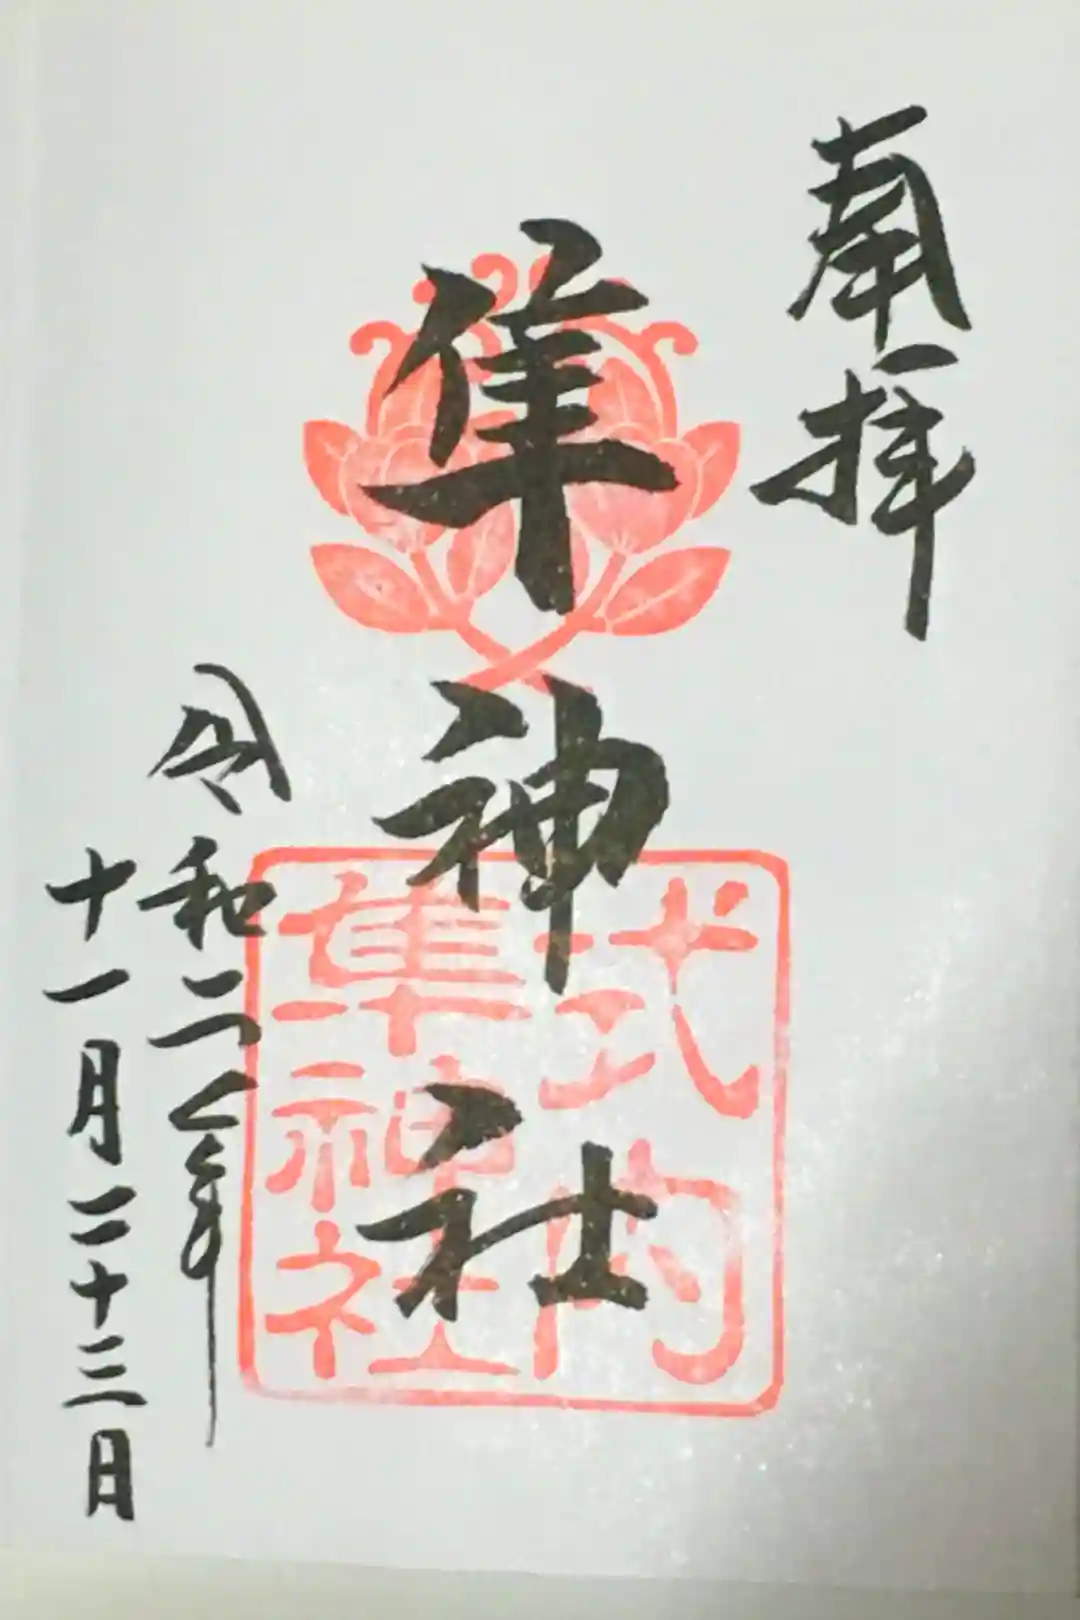 奉拝
隼神社
式内
隼神社
令和二年
十一月二十三日